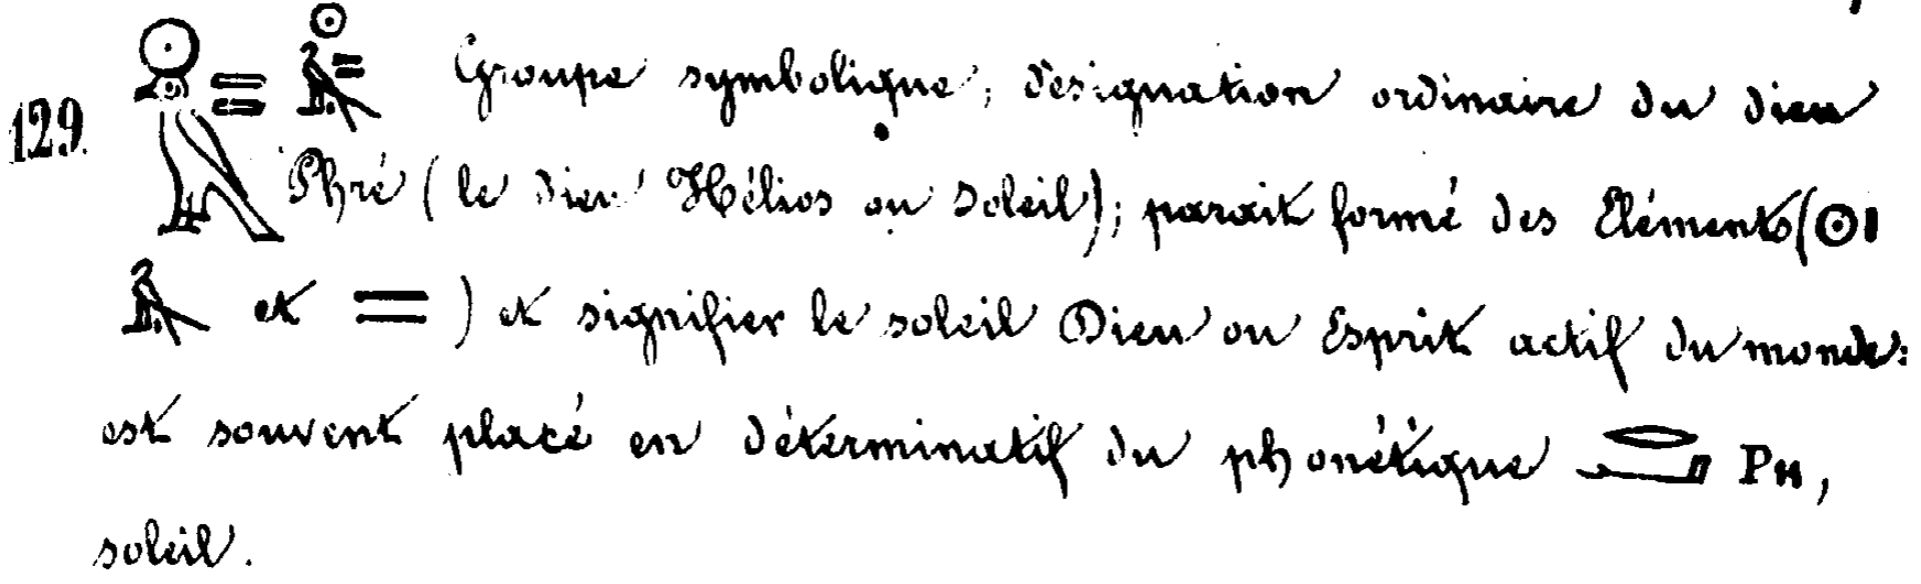 129. 𓅃 = 𓅃 = Groupe symbolique, désignation ordinaire du dieu
Phré (le dieu Hélios ou soleil); parait formé des Eléments (𓇳𓏤
𓅃 et =) et signifier le soleil Dieu ou Esprit actif du monde:
est souvent placé en déterminatif du phonétique 𓂋𓂝 Ⲣⲏ,
soleil.